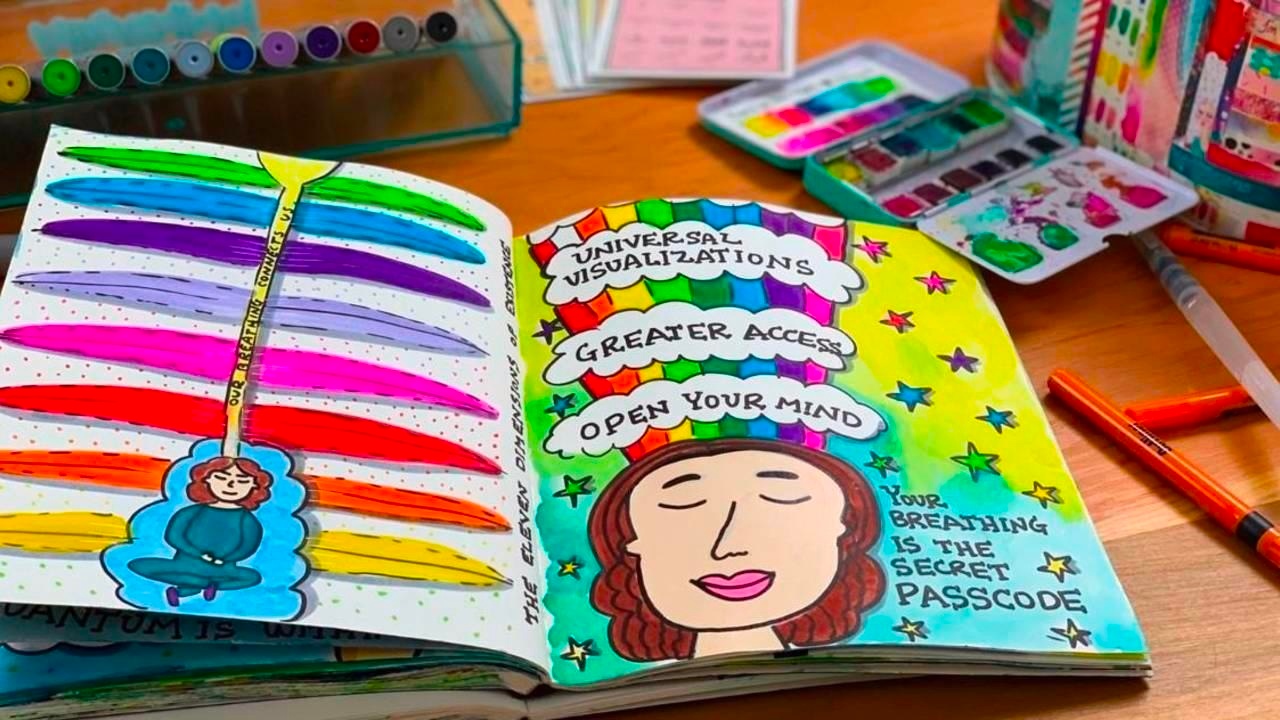 OUR BREATHING CONNECTS US
THE ELEVEN DIMENSIONS OF EXISTENCE
UNIVERSAL
VISUALIZATIONS
GREATER ACCESS
OPEN YOUR MIND
YOUR
BREATHING
IS THE
SECRET
PASSCODE
IS